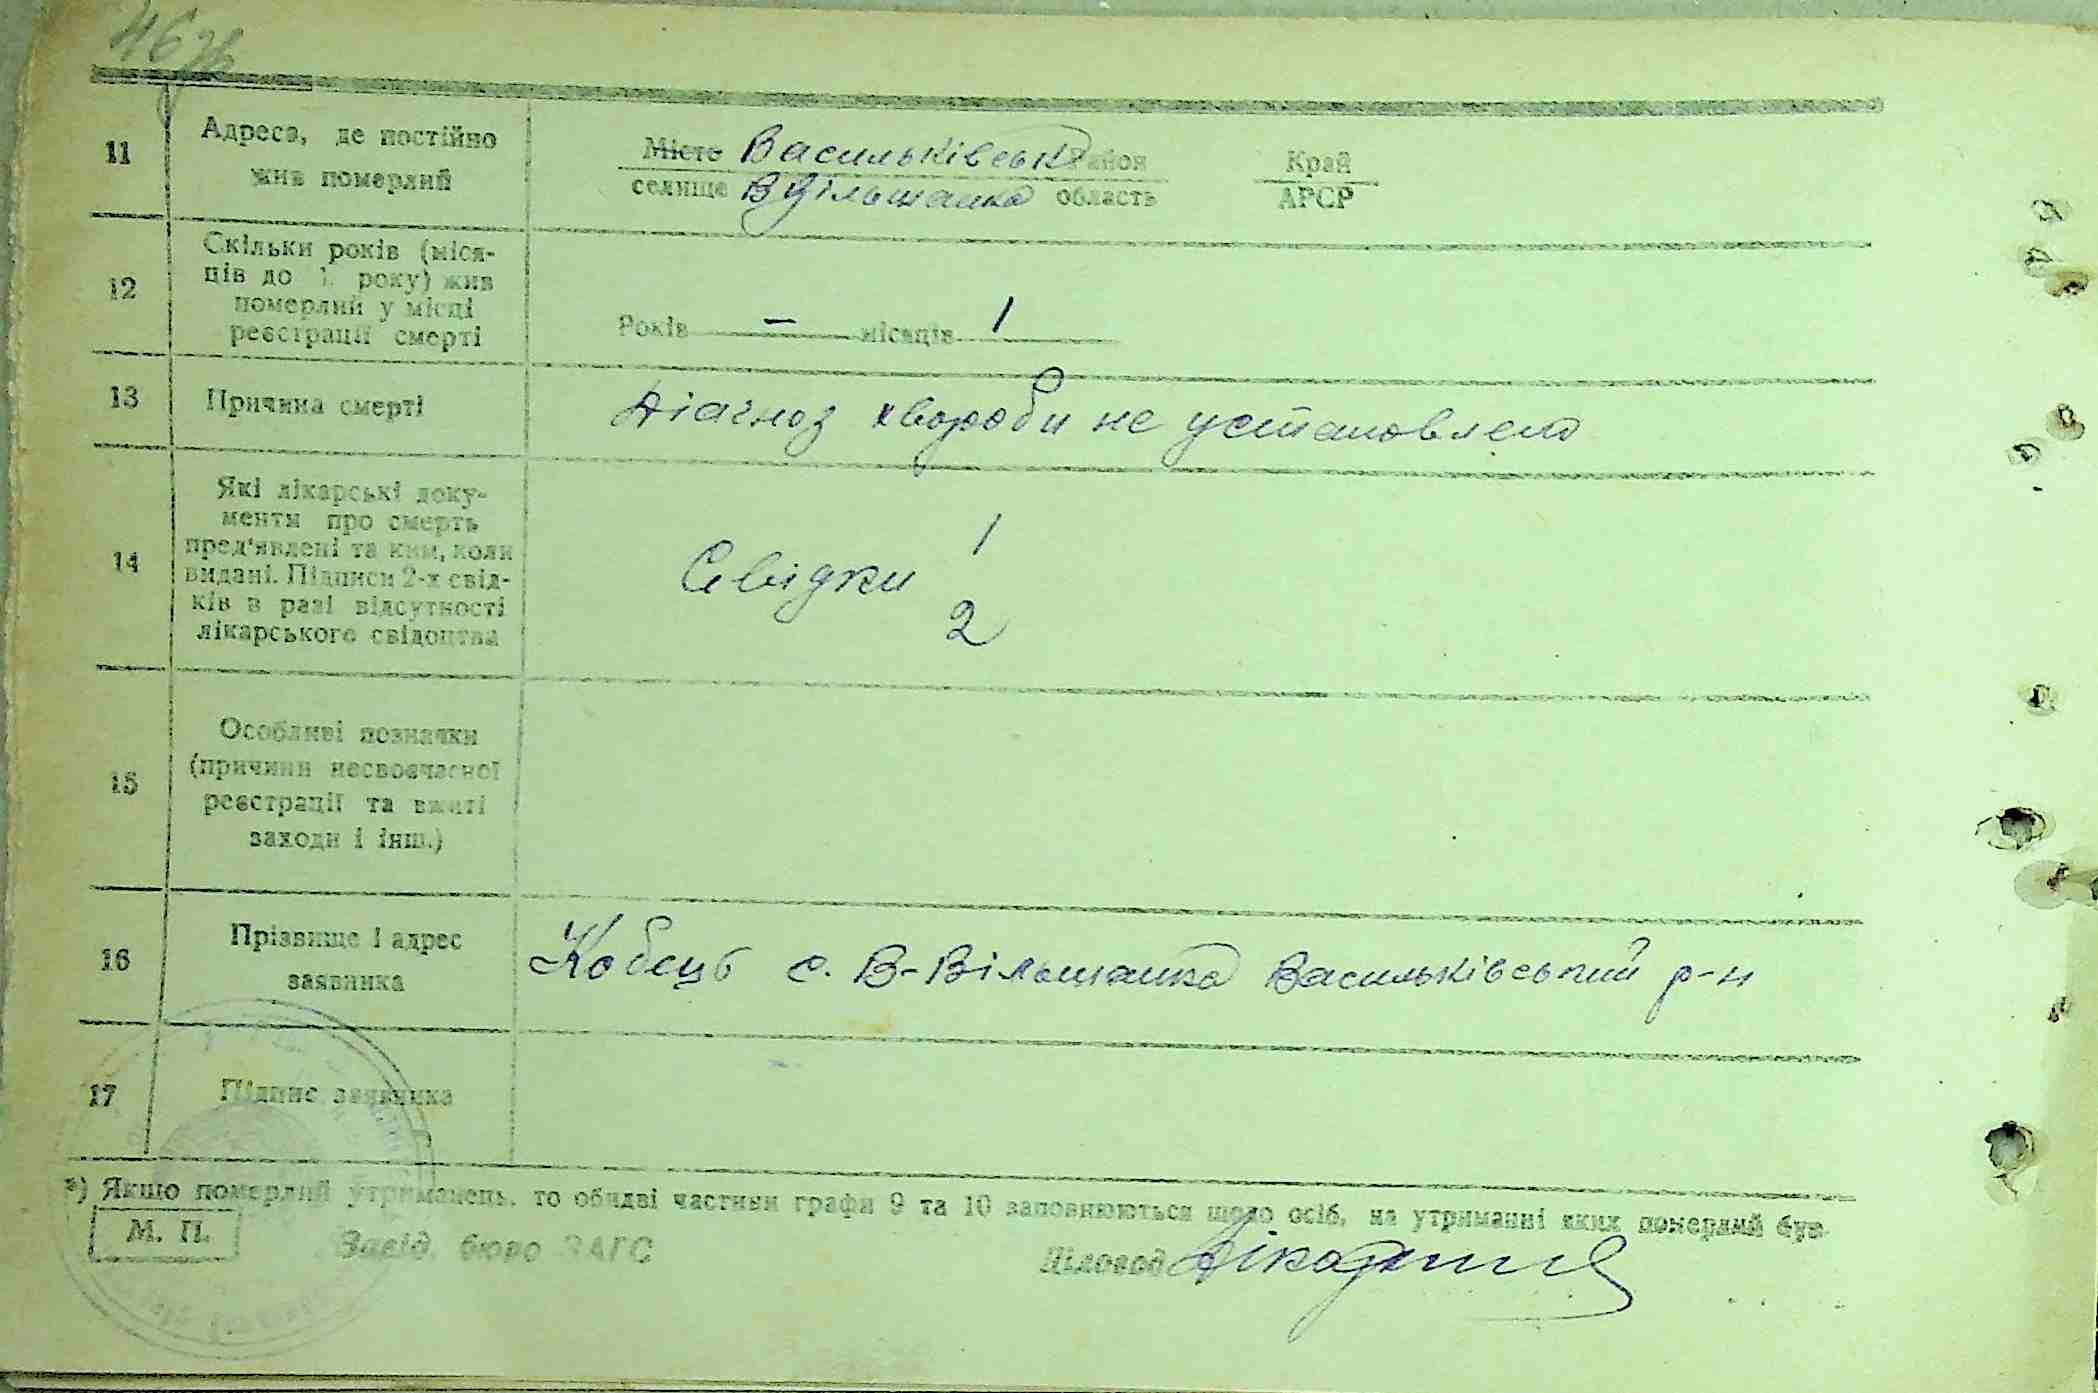 46 зв
11
Адреса, де постійно
жив померлий
Місто Васильківськ район Край
селище В Вільшанка область АРСР
12
Скільки років (міся-
ців до 1 року) жив
померлий у місці
реєстрації смерті
Років — місяців 1
13
Причина смерті
Діагноз хвороби не установлено
14
Які лікарські доку-
менти про смерть
пред'явлені та ким, коли
видані. Підписи 2-х свід-
ків в разі відсутності
лікарського свідоцтва
Свідки 1
2
15
Особливі позначки
(причини несвоєчасної
реєстрації та вжиті
заходи і інш.)
16
Прізвище і адрес
заявника
Кобець с. В-Вільшанка Васильківський р-н
17
Підпис заявника
*) Якщо померлий утриманець, то обидві частини графи 9 та 10 заповнюються щодо осіб, на утриманні яких померлий був.
М. П.
Завід. бюро ЗАГС
Діловод